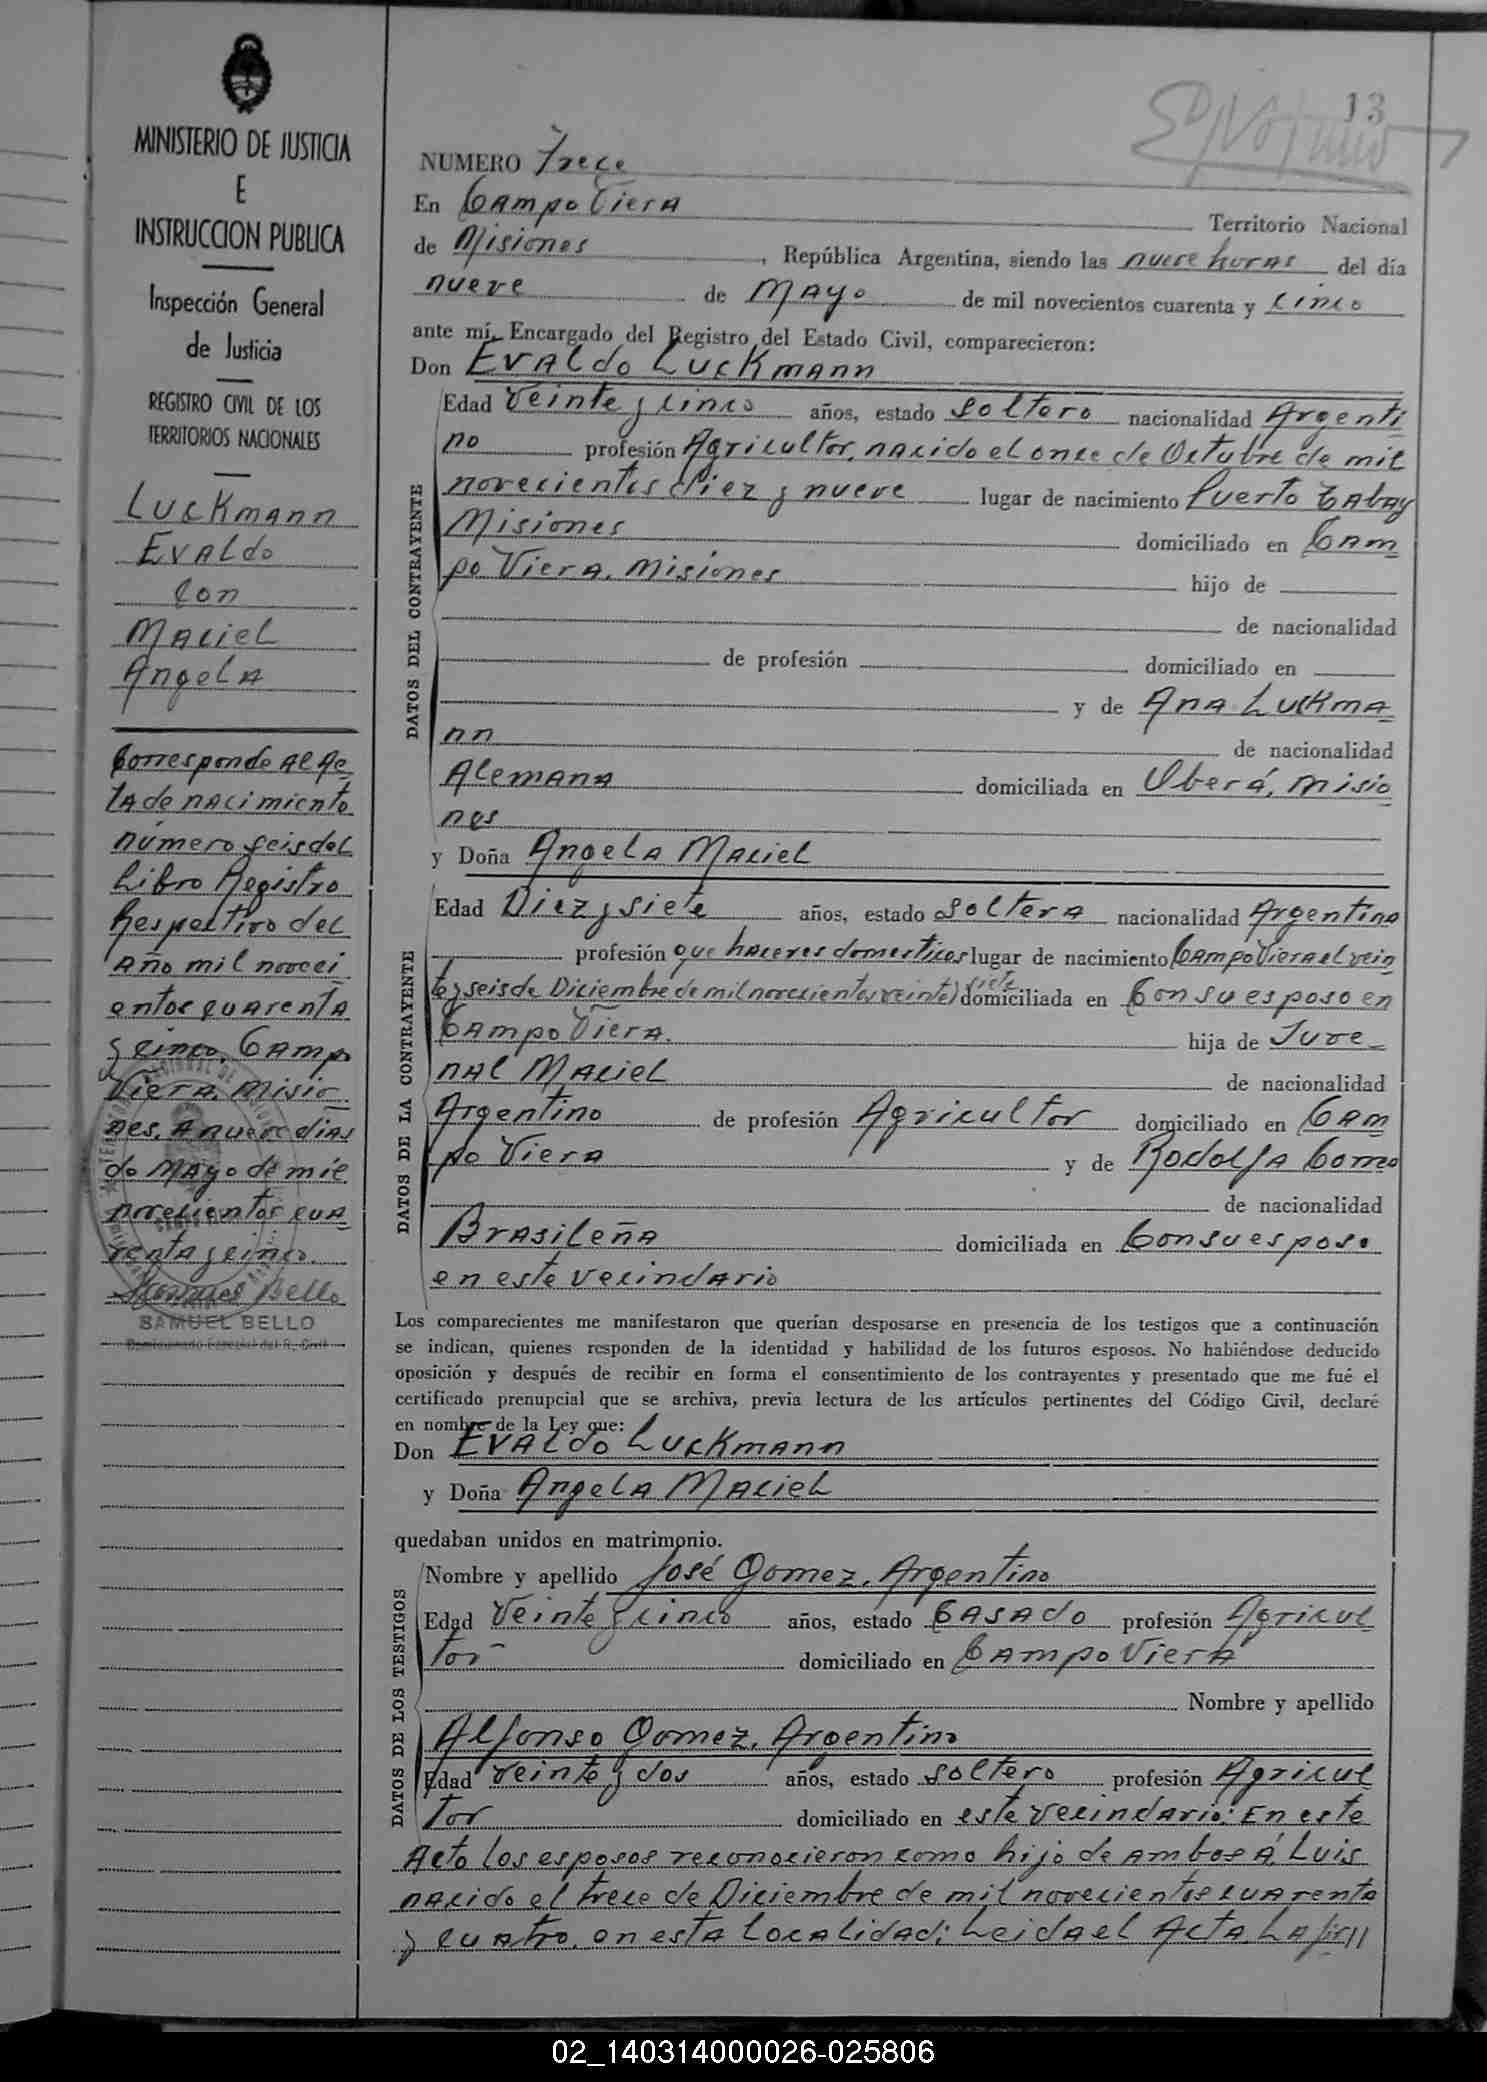 MINISTERIO DE JUSTICIA
E
INSTRUCCION PUBLICA
Inspección General
de Justicia
REGISTRO CIVIL DE LOS
TERRITORIOS NACIONALES
Luckmann
Evaldo
con
Maciel
Angela
Corresponde al Ac
ta de nacimiento
número seis del
Libro Registro
Respectivo del
año mil noveci
entos cuarenta
y cinco. Campo
Viera, Misio
nes, a nueve días
de Mayo de mil
novecientos cua
renta y cinco.
Bello
SAMUEL BELLO
13
NUMERO Trece
En Campo Viera Territorio Nacional
de Misiones, República Argentina, siendo las nueve horas del día
nueve de Mayo de mil novecientos cuarenta y cinco
ante mí, Encargado del Registro del Estado Civil, comparecieron:
Don Evaldo Luckmann
DATOS DEL CONTRAYENTE
Edad Veinte y cinco años, estado soltero nacionalidad Argenti
no profesión Agricultor, nacido el once de Octubre de mil
novecientos diez y nueve lugar de nacimiento Puerto Tabay
Misiones domiciliado en Cam
po Viera. Misiones hijo de
de nacionalidad
de profesión domiciliado en
y de Ana Luckma
nn de nacionalidad
Alemana domiciliada en Oberá, Misio
nes
y Doña Angela Maciel
DATOS DE LA CONTRAYENTE
Edad Diez y siete años, estado soltera nacionalidad Argentina
profesión que haceres domesticos lugar de nacimiento Campo Viera el vein
te y seis de Diciembre de mil novecientos veinte y siete domiciliada en Con su esposo en
Campo Viera. hija de Juve
nal Maciel de nacionalidad
Argentino de profesión Agricultor domiciliado en Cam
po Viera y de Rodolfa Correo
de nacionalidad
Brasileña domiciliada en Con su esposo
en este vecindario
Los comparecientes me manifestaron que querían desposarse en presencia de los testigos que a continuación
se indican, quienes responden de la identidad y habilidad de los futuros esposos. No habiéndose deducido
oposición y después de recibir en forma el consentimiento de los contrayentes y presentado que me fué el
certificado prenupcial que se archiva, previa lectura de los artículos pertinentes del Código Civil, declaré
en nombre de la Ley que:
Don Evaldo Luckmann
y Doña Angela Maciel
quedaban unidos en matrimonio.
DATOS DE LOS TESTIGOS
Nombre y apellido José Gomez, Argentino
Edad Veinte y cinco años, estado Casado profesión Agricul
tor domiciliado en Campo Viera
Nombre y apellido
Alfonso Gomez, Argentino
Edad veinte y dos años, estado soltero profesión Agricul
tor domiciliado en este vecindario: En este
Acto los esposos reconocieron como hijo de ambos á, Luis
nacido el trece de Diciembre de mil novecientos cuarenta
y cuatro, en esta localidad; Leida el Acta, La fir//
02_140314000026-025806